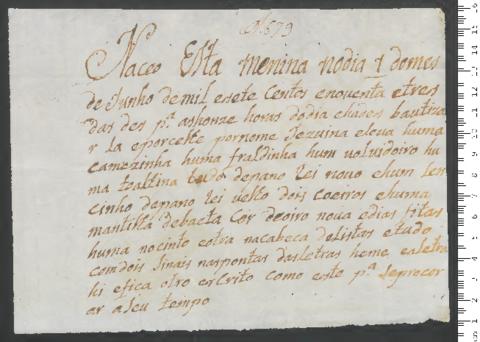 N 679
Naceo Esta menina nodia 1 domes
de Junho demil esete Centos enoventa etres
das des p.ª ashonze horas dodia ehades bautiza
r la eporcelhe pornome Jezuina eleva huma
camezinha huma fraldinha hum volvedoiro hu
ma toaltina tudo depano Rei novo ehum len
cinho depano Rei velho dois coeiros ehuma
mantilha debaeta Cor deoiro nova edias fitas
huma nocinto eotra nacabeca delistas etudo
comdois Sinais naspontas dasletras heme ealetra
ki efica otro esCrito Como este p.ª seprocor
ar aseu tempo